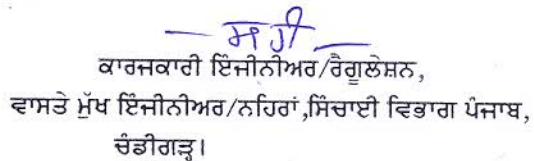 — ਸਹੀ —
ਕਾਰਜਕਾਰੀ ਇੰਜੀਨੀਅਰ/ਰੈਗੂਲੇਸ਼ਨ,
ਵਾਸਤੇ ਮੁੱਖ ਇੰਜੀਨੀਅਰ/ਨਹਿਰਾਂ,ਸਿੰਚਾਈ ਵਿਭਾਗ ਪੰਜਾਬ,
ਚੰਡੀਗੜ੍ਹ।